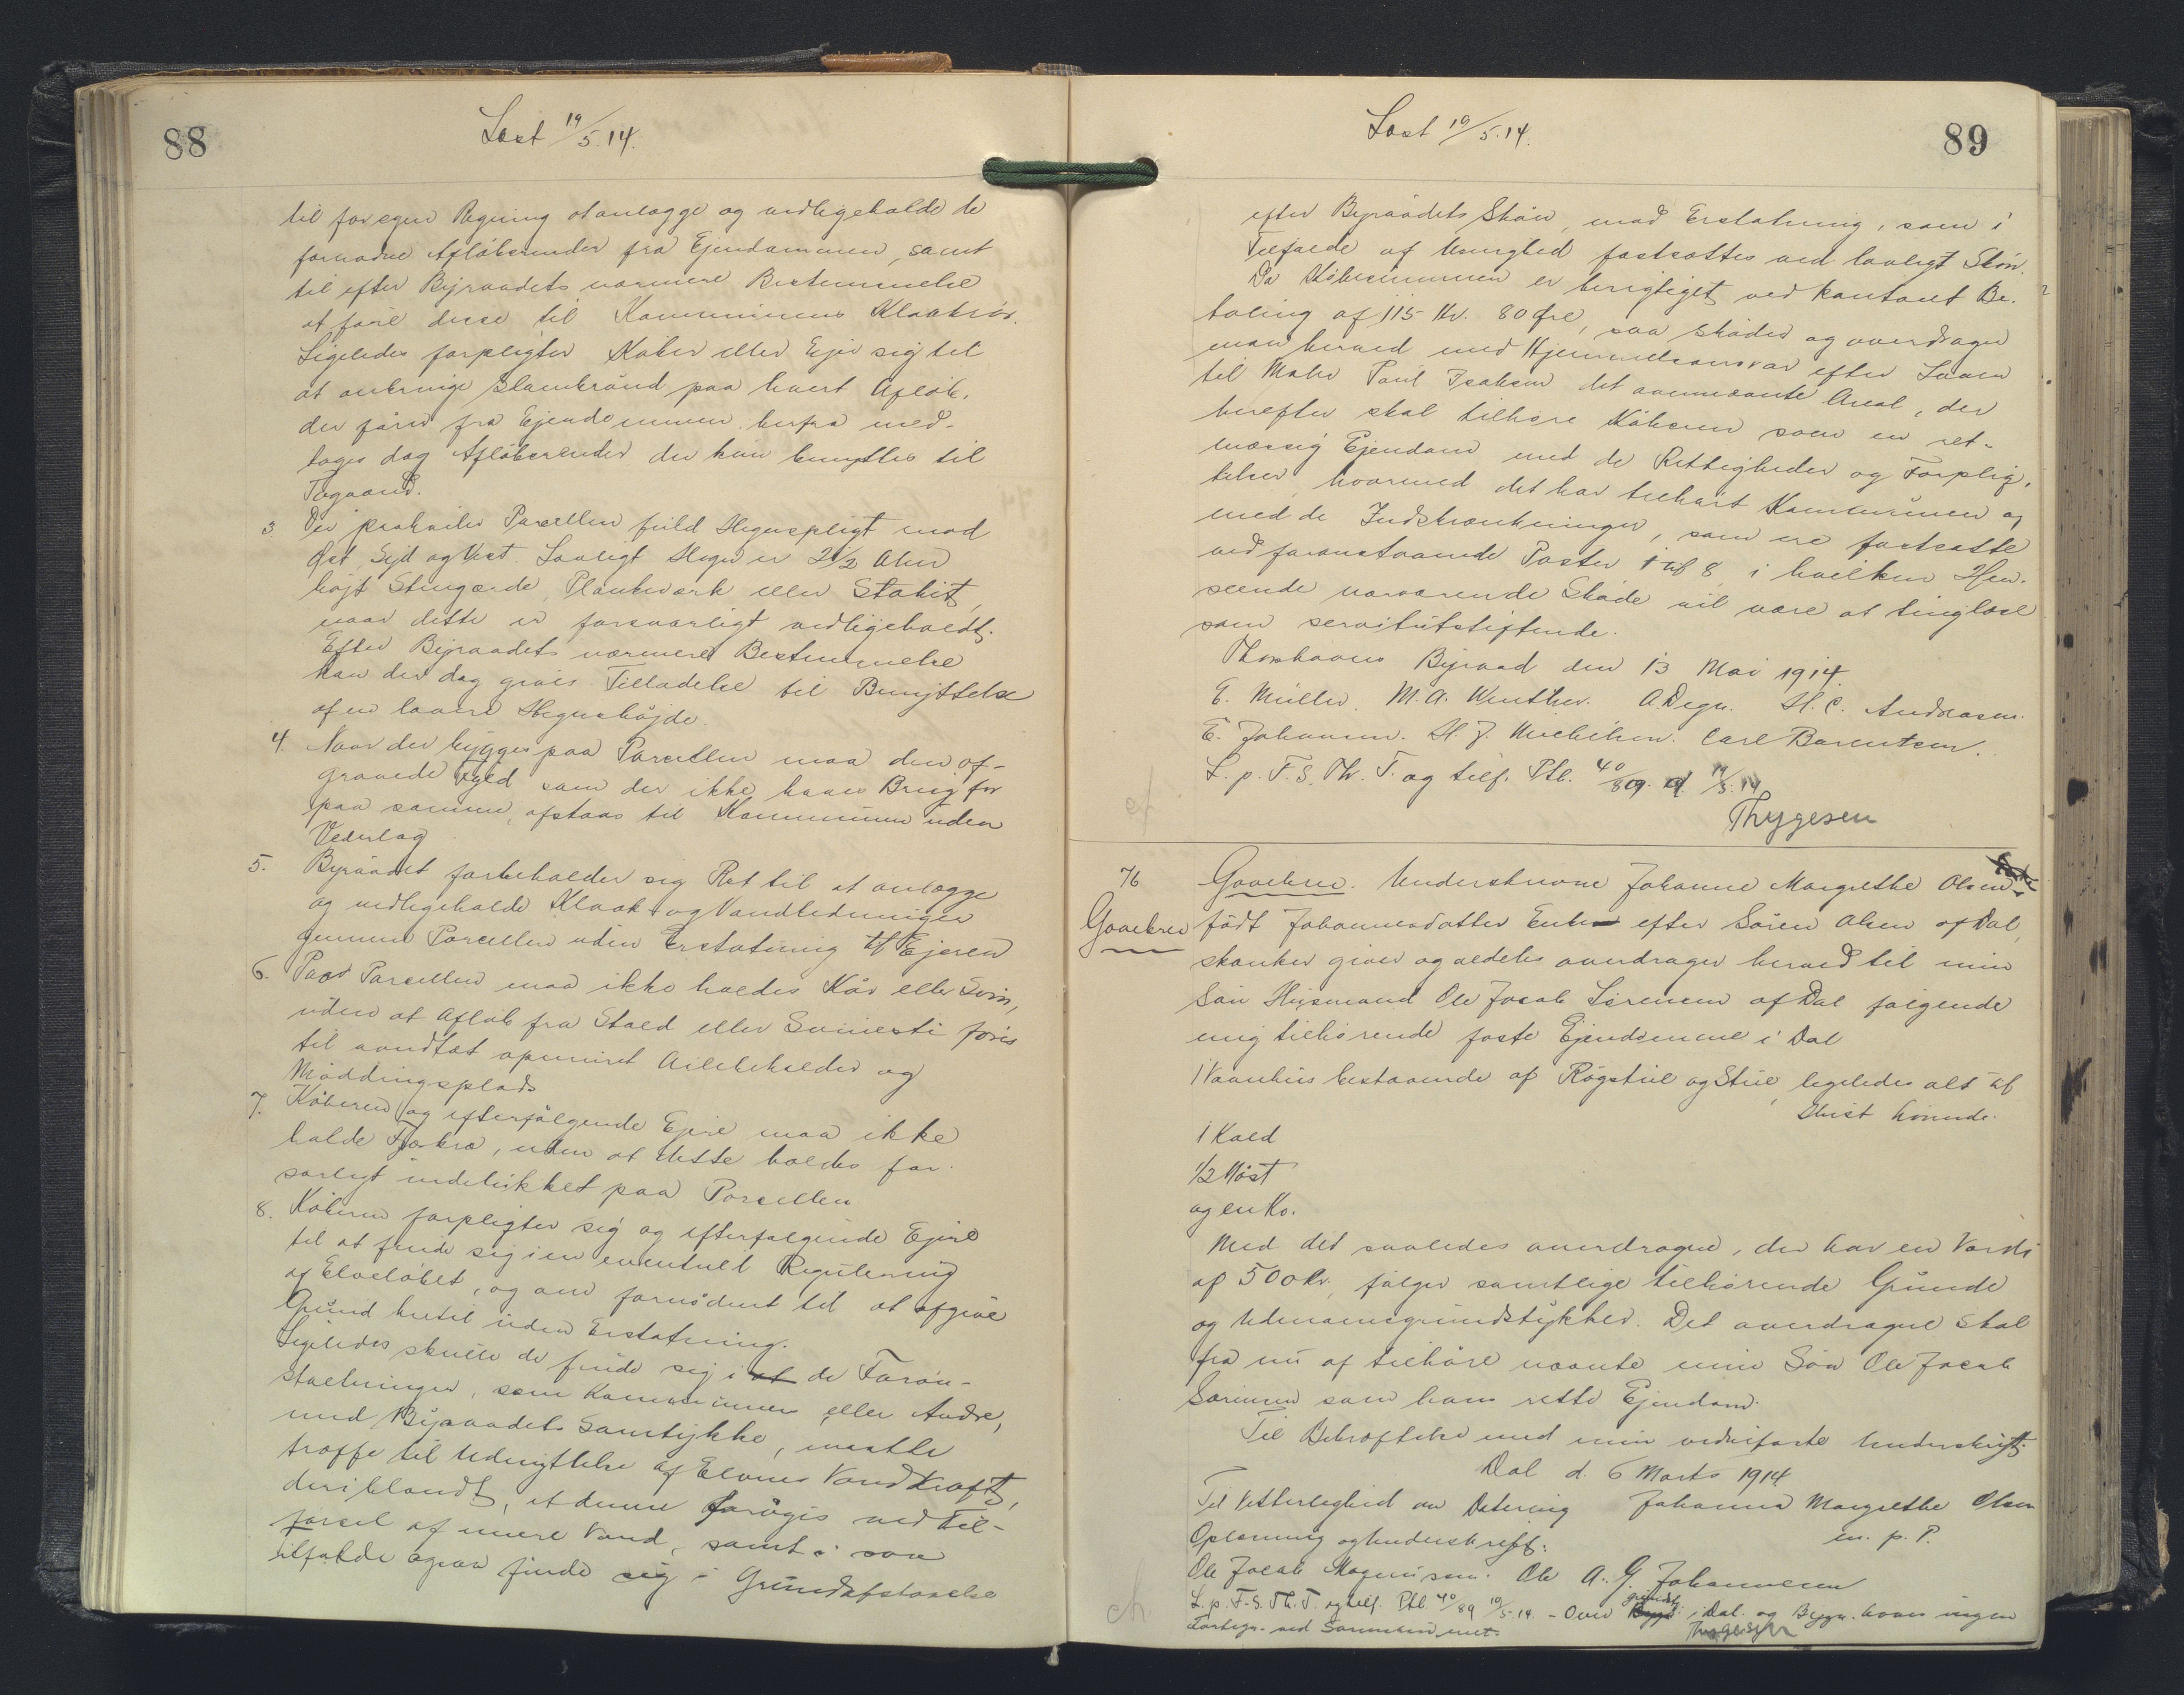 88
Læst 19/5.14.
til for egen Regning at anlægge og vedligeholde de
fornødne Afløbsrender fra Ejendommen, samt
til efter Byraadets nærmere Bestemmelse
at føre disse til Kommunens Kloakrør.
Ligeledes forpligter Køber eller Ejer sig til
at anbringe Slambrønd paa hvert Afløb,
der fører fra Ejendommen, herfra und-
tages dog Afløbsrender der kun benyttes til
Tagvand.
3. Der paahviler Parcellen fuld Hegnspligt mod
Øst, Syd og Vest. Lovligt Hegn er 2 1/2 Alen
højt Stengærde, Plankværk eller Stakit,
naar dette er forsvarligt vedligeholdt.
Efter Byraadets nærmere Bestemmelse
kan der dog gives Tilladelse til Benyttelse
af en lavere Hegnshøjde.
4. Naar der bygges paa Parcellen maa den af-
gravede Fyld som der ikke haves Brug for
paa samme, afstaas til Kommunen uden
Vederlag
5. Byraadet forbeholder sig Ret til at anlægge
og vedligeholde Kloak og Vandledninger
gennem Parcellen uden Erstatning til Ejeren
6. Paa Parcellen maa ikke holdes Køer eller Svin,
uden at Afløb fra Stald eller Svinesti føres
til vandtæt opmuret Ajlebeholder og
Møddingsplads
7. Køberen og efterfølgende Ejere maa ikke
holde Fjerkræ, uden at dette holdes for-
svarligt indelukket paa Parcellen
8. Køberen forpligter sig og efterfølgende Ejere
til at finde sig i en eventuel Regulering
af Elveløbet, og om fornødent til at afgive
Grund hertil uden Erstatning.
Ligeledes skulle de finde sig i at de Foran-
staltninger, som Kommunen eller Andre,
med Byraadets Samtykke, maatte
træffe til Udnyttelse af Elvens Vandkraft,
deriblandt, at denne forøges ved Til-
førsel af mere Vand, samt i saa
tilfælde ogsaa finde sig i Grundafstaaelse
89
Læst 19/5.14.
efter Byraadets Skøn, mod Erstatning, som i
Tilfælde af Uenighed fastsættes ved lovligt Skøn.
Da Købesummen er berigtiget ved kontant Be-
taling af 115 Kr. 80 Øre, saa skøder og overdrager
man herved med Hjemmelsansvar efter Loven
til Maler Poul Isaksen det ovennævnte Areal, der
herefter skal tilhøre Køberen som en ret-
mæssig Ejendom med de Rettigheder og Forplig-
telser, hvormed det har tilhørt Kommunen og
med de Indskrænkninger, som ere fastsatte
ved foranstaaende Poster 1 til 8, i hvilken Hen-
seende nærværende Skøde vil være at tinglæse
som servitutstiftende.
Thorshavns Byraad den 13 Mai 1914.
E. Müller. M. A. Winther. A. Degn. H. C. Andreasen.
E. Johansen. H. J. Michelsen. Carl Barentsen.
L. p. F. S. Th. T. og tilf. Ptl. 40/89. d. 19/5.14
Thygesen
76
Gavebrev
Gavebrev. Underskrevne Johanne Margrethe Olsen
født Johannesdatter Enke efter Søren Olsen af Dal,
skænker giver og aldeles overdrager herved til min
Søn Husmand Ole Jacob Sørensen af Dal følgende
mig tilhørende faste Ejendomme i Dal
1 Vaanhus bestaaende af Røgstue og Stue, ligeledes alt af
1 Kald
1/2 Høst
og en Ko.
Med det saaledes overdragne, der har en Værdi
af 500 Kr. følger samtlige tilhørende Grunde
og Udmarksgrundstykker. Det overdragne skal
fra nu af tilhøre nævnte min Søn Ole Jacob
Sørensen som hans rette Ejendom.
Til Bekræftelse med min vedførte Underskrift.
Dal d. 6 Marts 1914.
Til Vitterlighed om Datering Johanna Margrethe Olsen
Oplæsning og Underskrift: m. p. P.
Ole Jacob Magnussen. Ole A. G. Johannesen
L. p. F. S. Th. T. og tilf. Ptl. 40/89 19/5.14 - Over grundst. i Dal. og Bygn. haves ingen
Thygesen